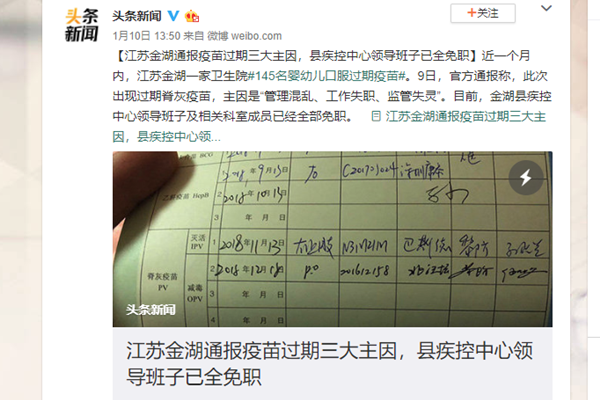 头条
新闻
头条新闻
1月10日 13:50 来自 微博 weibo.com
+关注
【江苏金湖通报疫苗过期三大主因，县疾控中心领导班子已全免职】近一个月
内，江苏金湖一家卫生院#145名婴幼儿口服过期疫苗#。9日，官方通报称，此次
出现过期脊灰疫苗，主因是“管理混乱、工作失职、监管失灵”。目前，金湖县疾控
中心领导班子及相关科室成员已经全部免职。 江苏金湖通报疫苗过期三大主
因，县疾控中心领...
年9月13日
C201703024
乙肝疫苗 HepB
2
2018年10月13日
3 年 月 日
脊灰疫苗
PV
灭活
IPV
1 2018年11月13日
N3M21M 巴斯德
减毒
OPV
2 2018年12月18日 p.o 201612158
3 年 月 日
年 月 日
头条新闻
江苏金湖通报疫苗过期三大主因，县疾控中心领
导班子已全免职